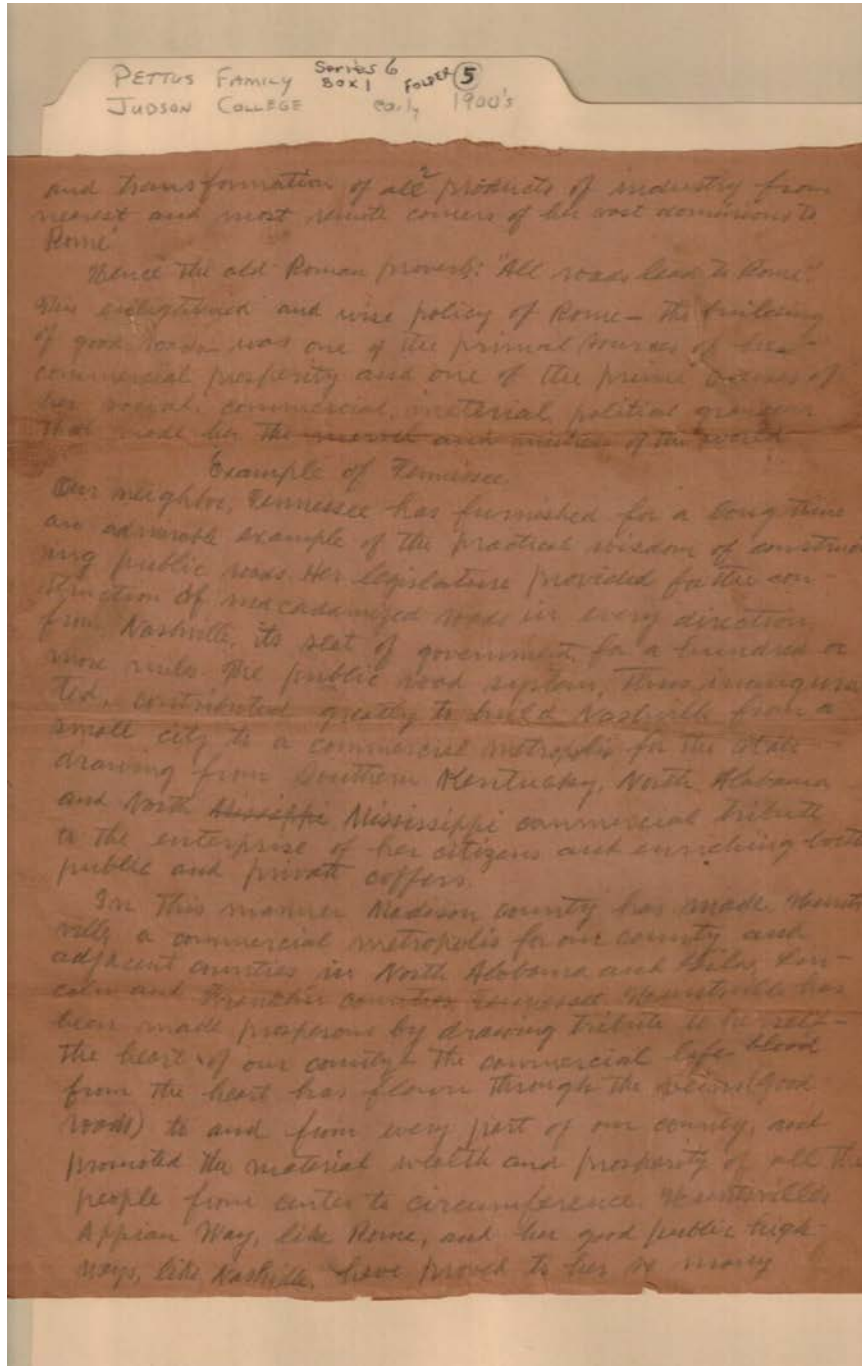 PETTUS FAMILY Series 6 BOX 1 FOLDER 5
JUDSON COLLEGE early 1900's
2
and transformation of all products of industry from
nearest and most remote corners of her vast dominions to
Rome
Hence the old Roman proverb: "All roads lead to Rome".
This enlightened and wise policy of Rome - the building
of good roads - was one of the primal sources of her
commercial prosperity and one of the prime causes of
her social, commercial, material, political grandeur
that made her the marvel and mistress of the world
Example of Tennessee.
Our neighbor, Tennessee has furnished for a long time
an admirable example of the practical wisdom of construc
ting public roads. Her legislature provided for the con-
struction of macadamized roads in every direction
from Nashville, its seat of government, for a hundred or
more miles. The public road system, thus inaugura
ted, contributed greatly to build Nashville from a
small city to a commercial metropolis for the state
drawing from Southern Kentucky, North Alabama
and North Mississippi commercial tribute
to the enterprise of her citizens and enriching both
public and private coffers.
In this manner Madison county has made Hunts
ville a commercial metropolis for our county and
adjacent counties in North Alabama and Giles, Lin-
coln and Franklin counties Tennessee. Huntsville has
been made prosperous by drawing tribute to herself -
the heart of our county - the commercial life-blood
from the heart has flown through the veins (good
roads) to and from every part of our county, and
promoted the material wealth and prosperity of all the
people from center to circumference. Huntsville's
Appian Way, like Rome, and her good public high-
ways, like Nashville, have proved to her in many